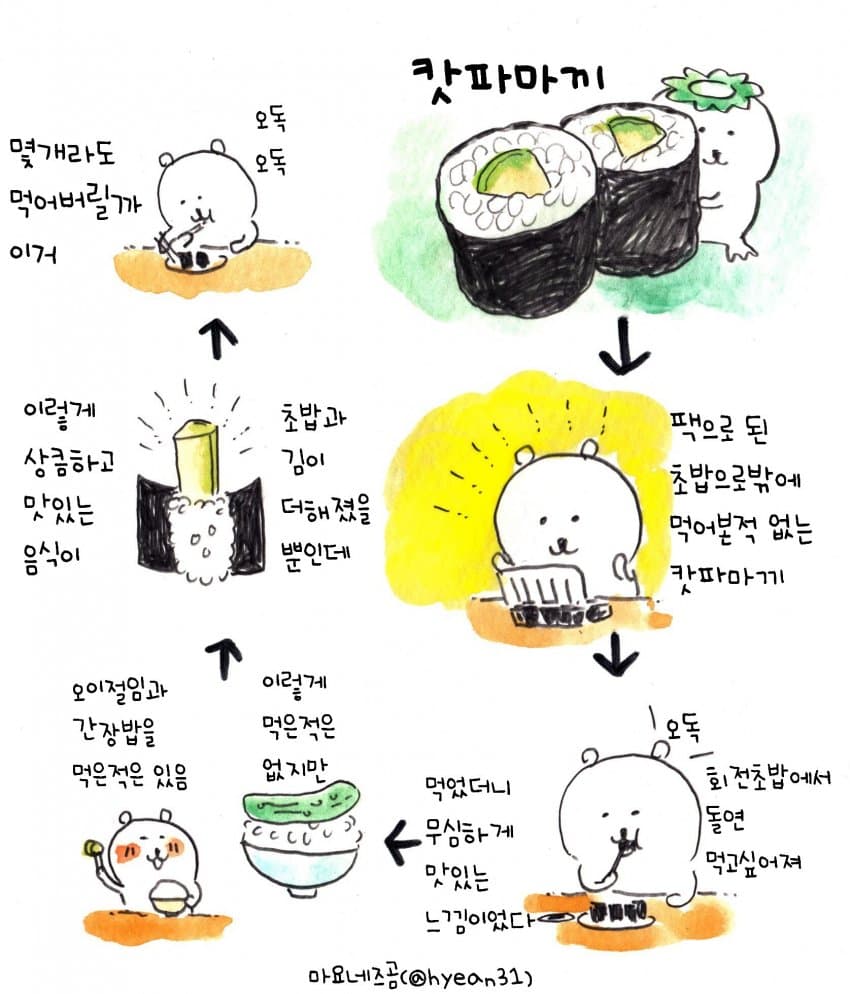 캇파마끼
팩으로 된
초밥으로밖에
먹어본적 없는
캇파마끼
오독
회전초밥에서
돌연
먹고싶어져
먹었더니
무심하게
맛있는
느낌이었다
이렇게
먹은적은
없지만
오이절임과
간장밥을
먹은적은 있음
이렇게
상큼하고
맛있는
음식이
초밥과
김이
더해졌을
뿐인데
몇개라도
먹어버릴까
이거
오독
오독
마요네즈곰(@hyean31)